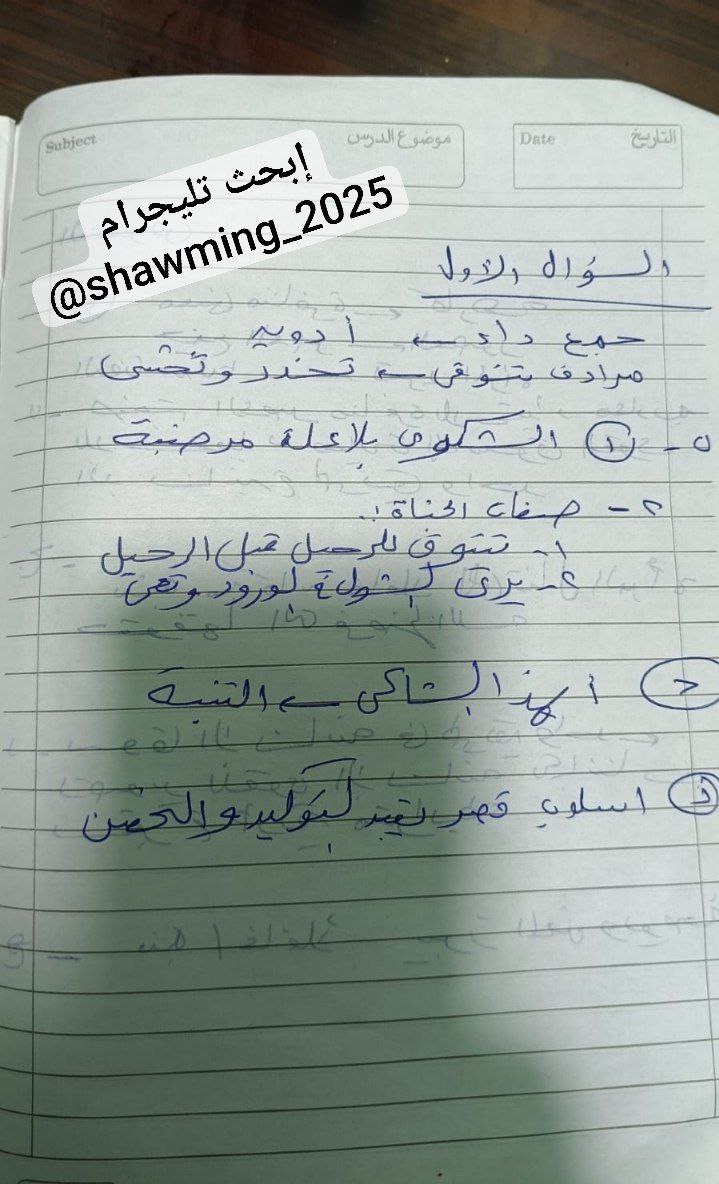 Subject موضوع الدرس
Date التاريخ
إبحث تليجرام
@shawming_2025
السؤال الأول
جمع داء ← أدوية
مرادف تتوقى ← تحذر وتخشى
ب - ① الشكوى بلا علة مرضية
٢ - صفات الجناة:
١- تتوق للرحيل قبل الرحيل
٢- يرى الشوك في الورود وتعمى
ج أيهذا الشاكى ← التنبيه
د اسلوب قصر يفيد التوكيد و